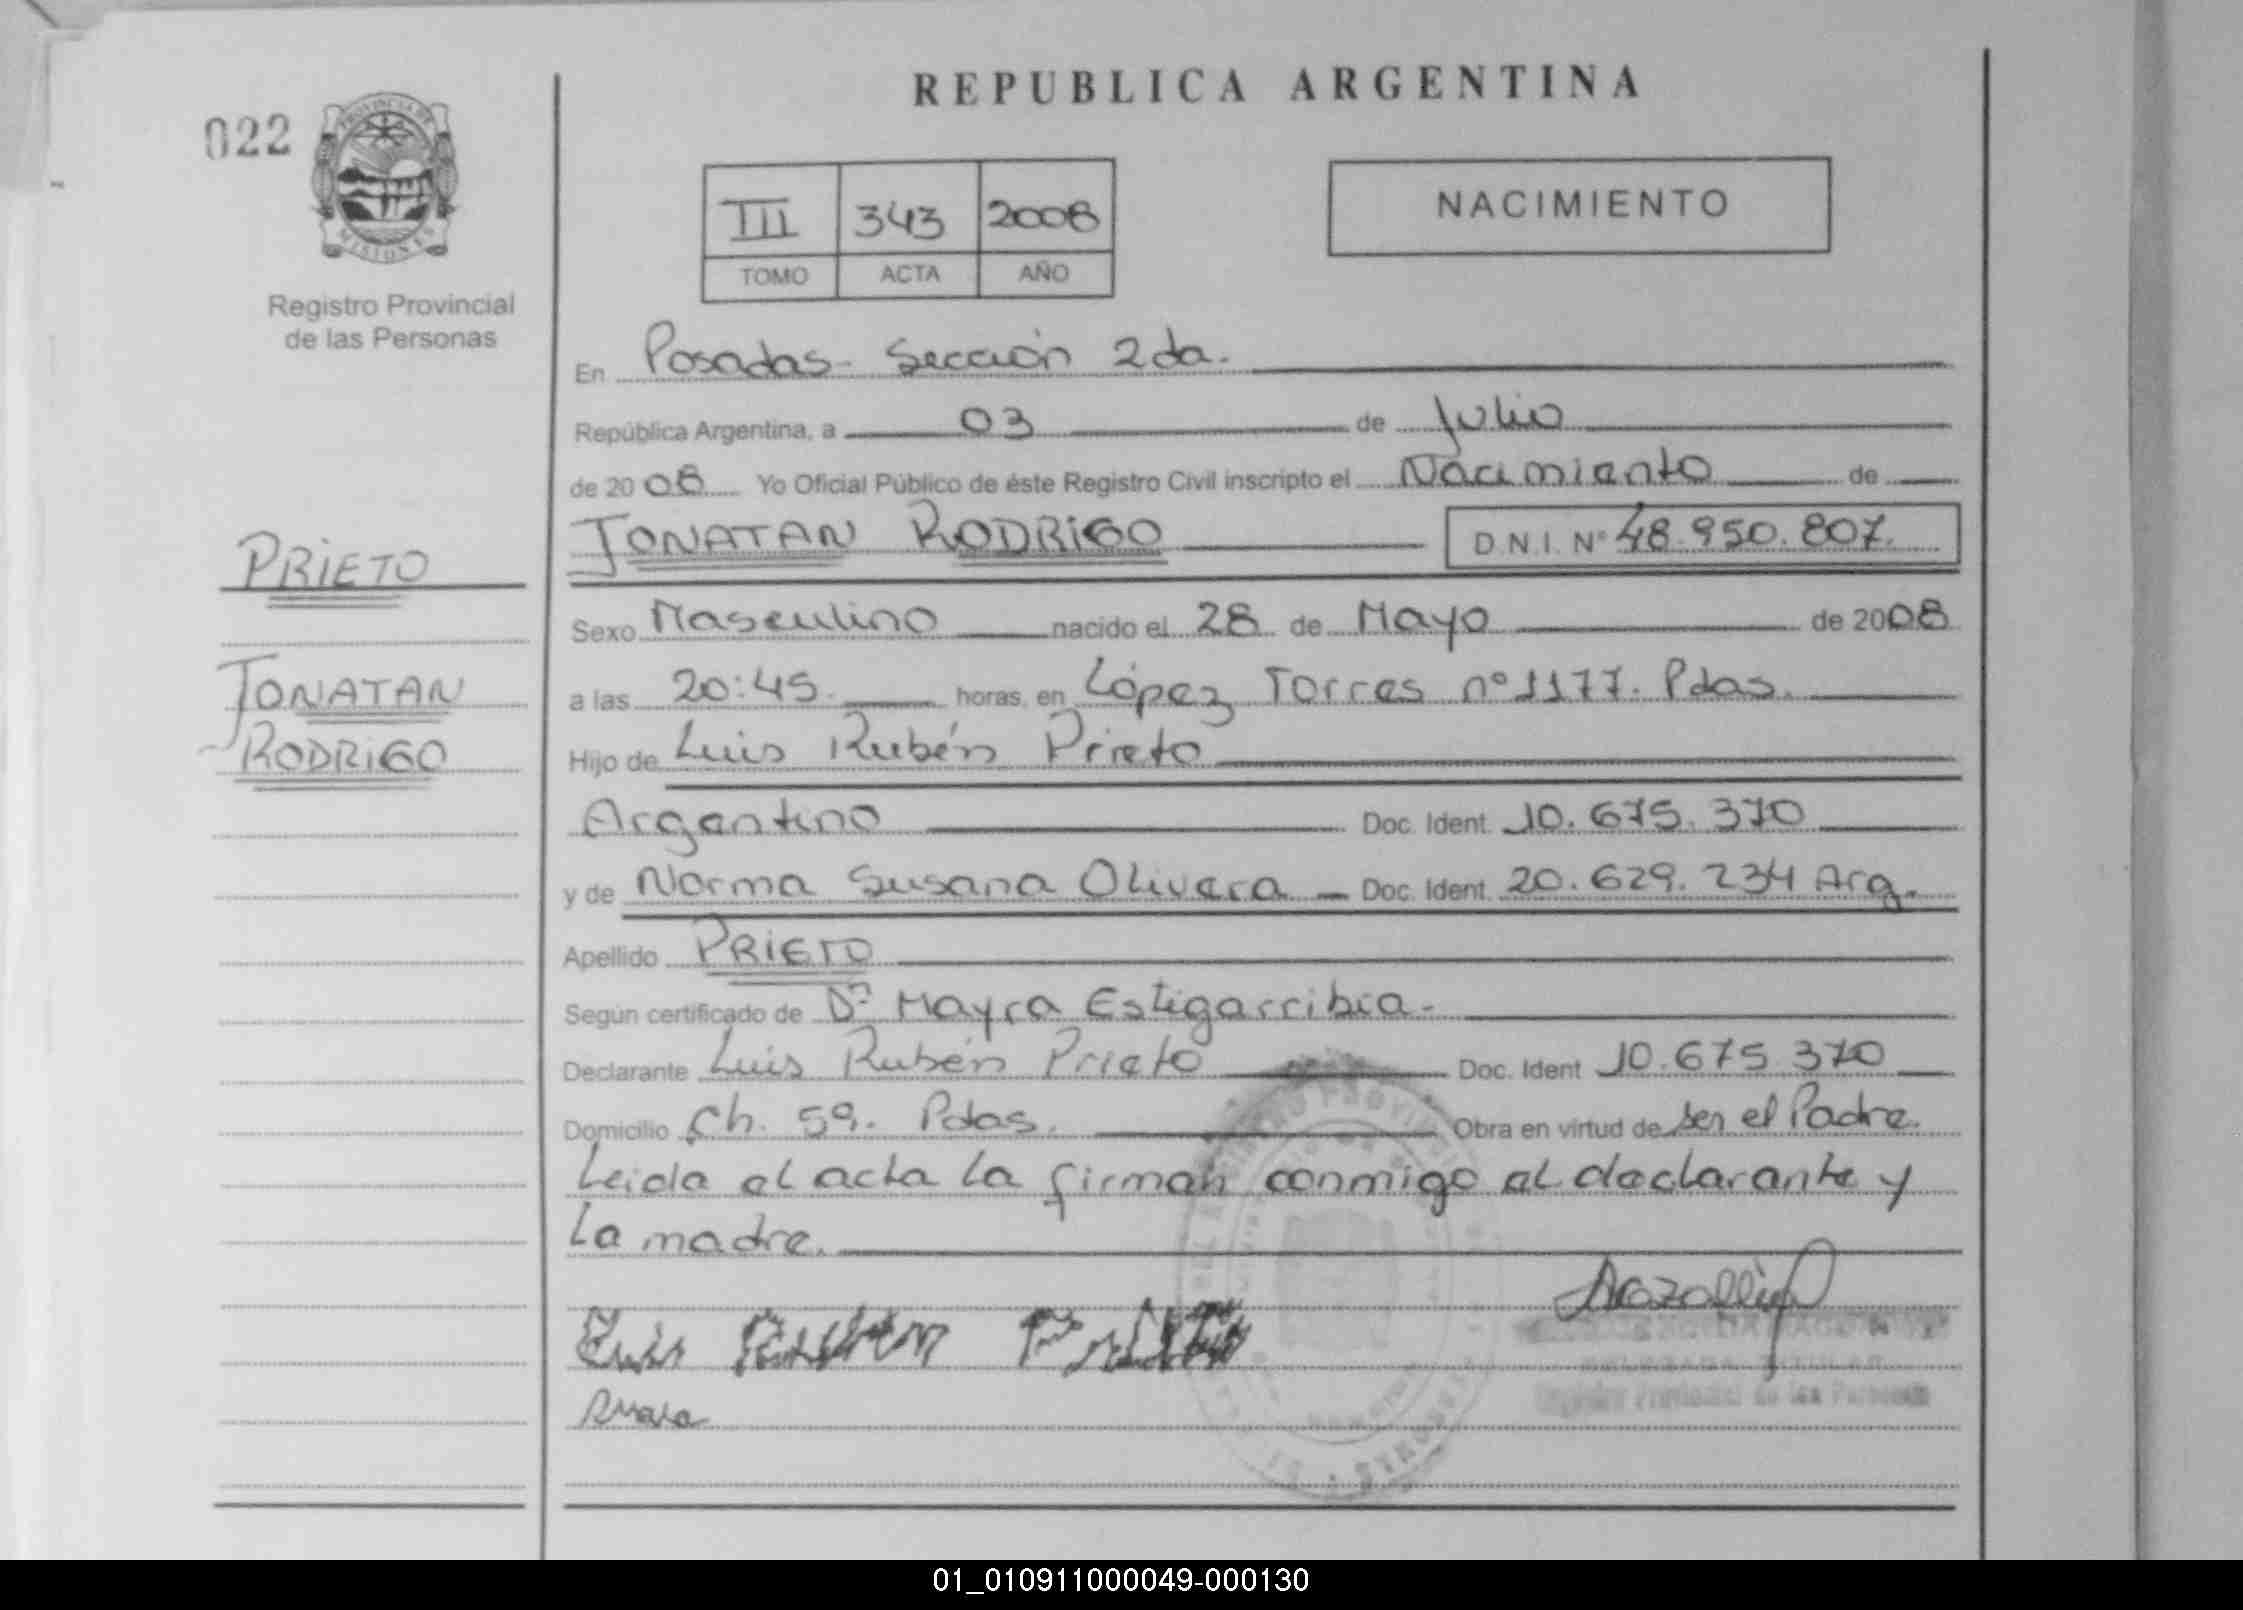 REPUBLICA ARGENTINA
022
PROVINCIA DE
MISIONES
Registro Provincial
de las Personas
III 343 2008
TOMO ACTA AÑO
NACIMIENTO
En Posadas - Sección 2da.
República Argentina, a 03 de Julio
de 2008 Yo Oficial Público de éste Registro Civil inscripto el Nacimiento de
JONATAN RODRIGO D.N.I. Nº 48.950.807.
PRIETO
JONATAN
RODRIGO
Sexo Masculino nacido el 28 de Mayo de 2008
a las 20:45. horas, en López Torres nº 1177. Pdas.
Hijo de Luis Rubén Prieto
Argentino Doc. Ident. 10.675.370
y de Norma Susana Olivera Doc. Ident. 20.629.234 Arg.
Apellido PRIETO
Según certificado de Dra Mayra Estigarribia.
Declarante Luis Rubén Prieto Doc. Ident 10.675.370
Domicilio Ch. 59. Pdas. Obra en virtud de ser el Padre.
Leida el acta la firman conmigo el declarante y
la madre.
Luis Ruben Prieto
Registro Provincial de las Personas
01_010911000049-000130